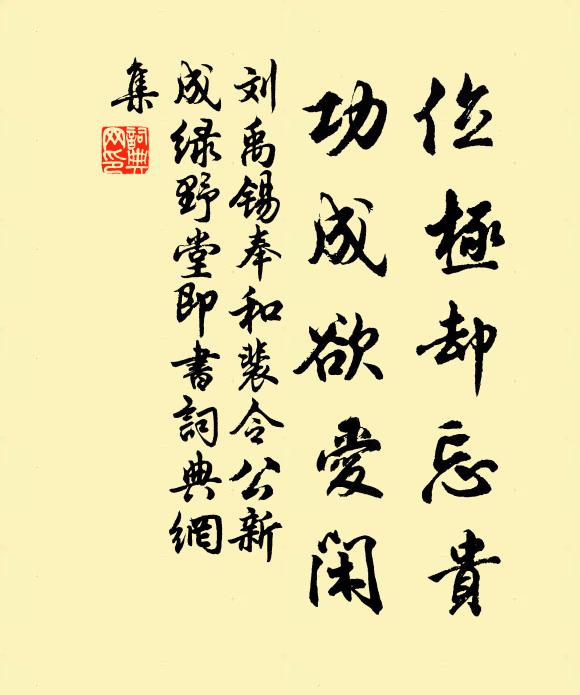 位極却忘貴
功成欲愛閑
刘禹锡奉和裴令公新
成绿野堂即書詞典網
集
詞典
网印